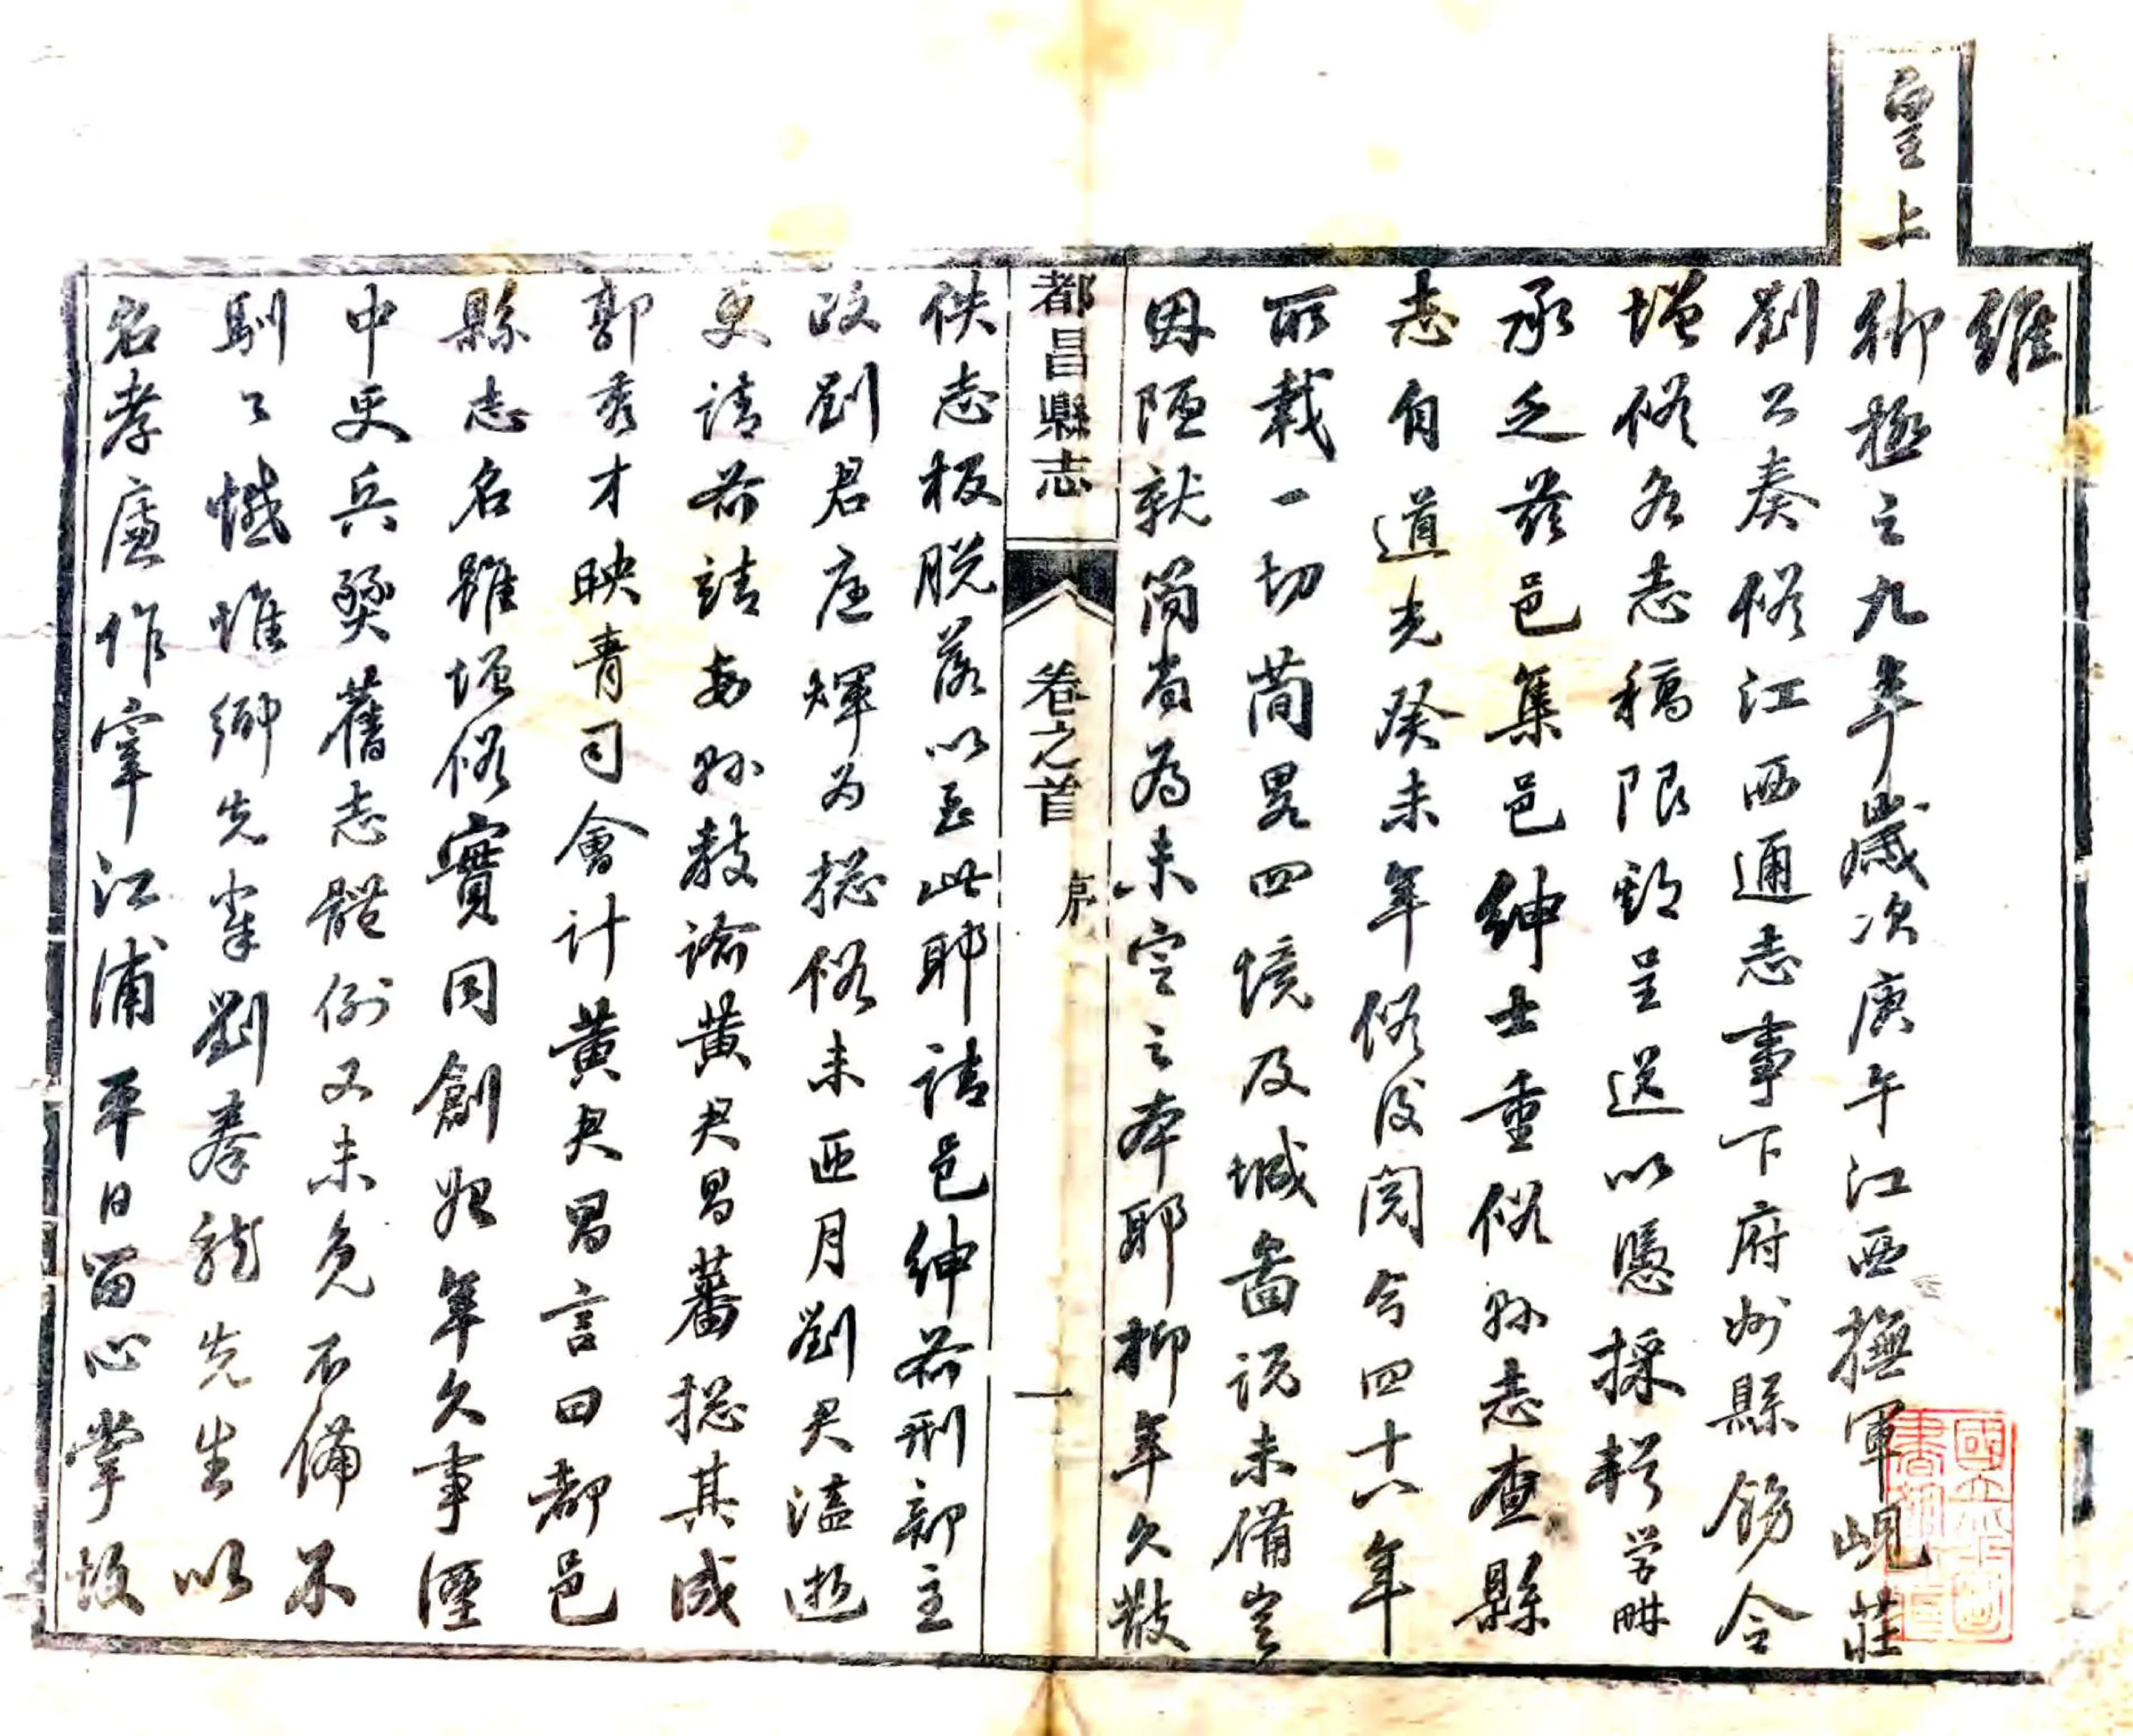 維
皇上御極之九年歲次庚午江西撫軍峴莊
劉公奏修江西通志事下府州縣飭令
增修各志稿限期呈送以憑採輯
承乏茲邑集邑紳士重修縣志查縣
志自道光癸未年修後閱今四十八年
所載一切簡畧四境及城圖說未備豈
因陋就簡皆為未定之本耶抑年久散
佚志板脫落以至此耶請邑紳前刑部主
政劉君庭煇為總修未匝月劉君溘逝
更請前靖安縣教諭黃君昌蕃總其成
郭秀才映青司會計黃君昌言曰都邑
縣志名雖增修實同創始年久事湮
中更兵燹舊志體例又未免不備不
馴公憾惟鄉先輩劉秦龍先生以
名孝廉作宰江浦平日留心掌故
都昌縣志
卷之首
序
一